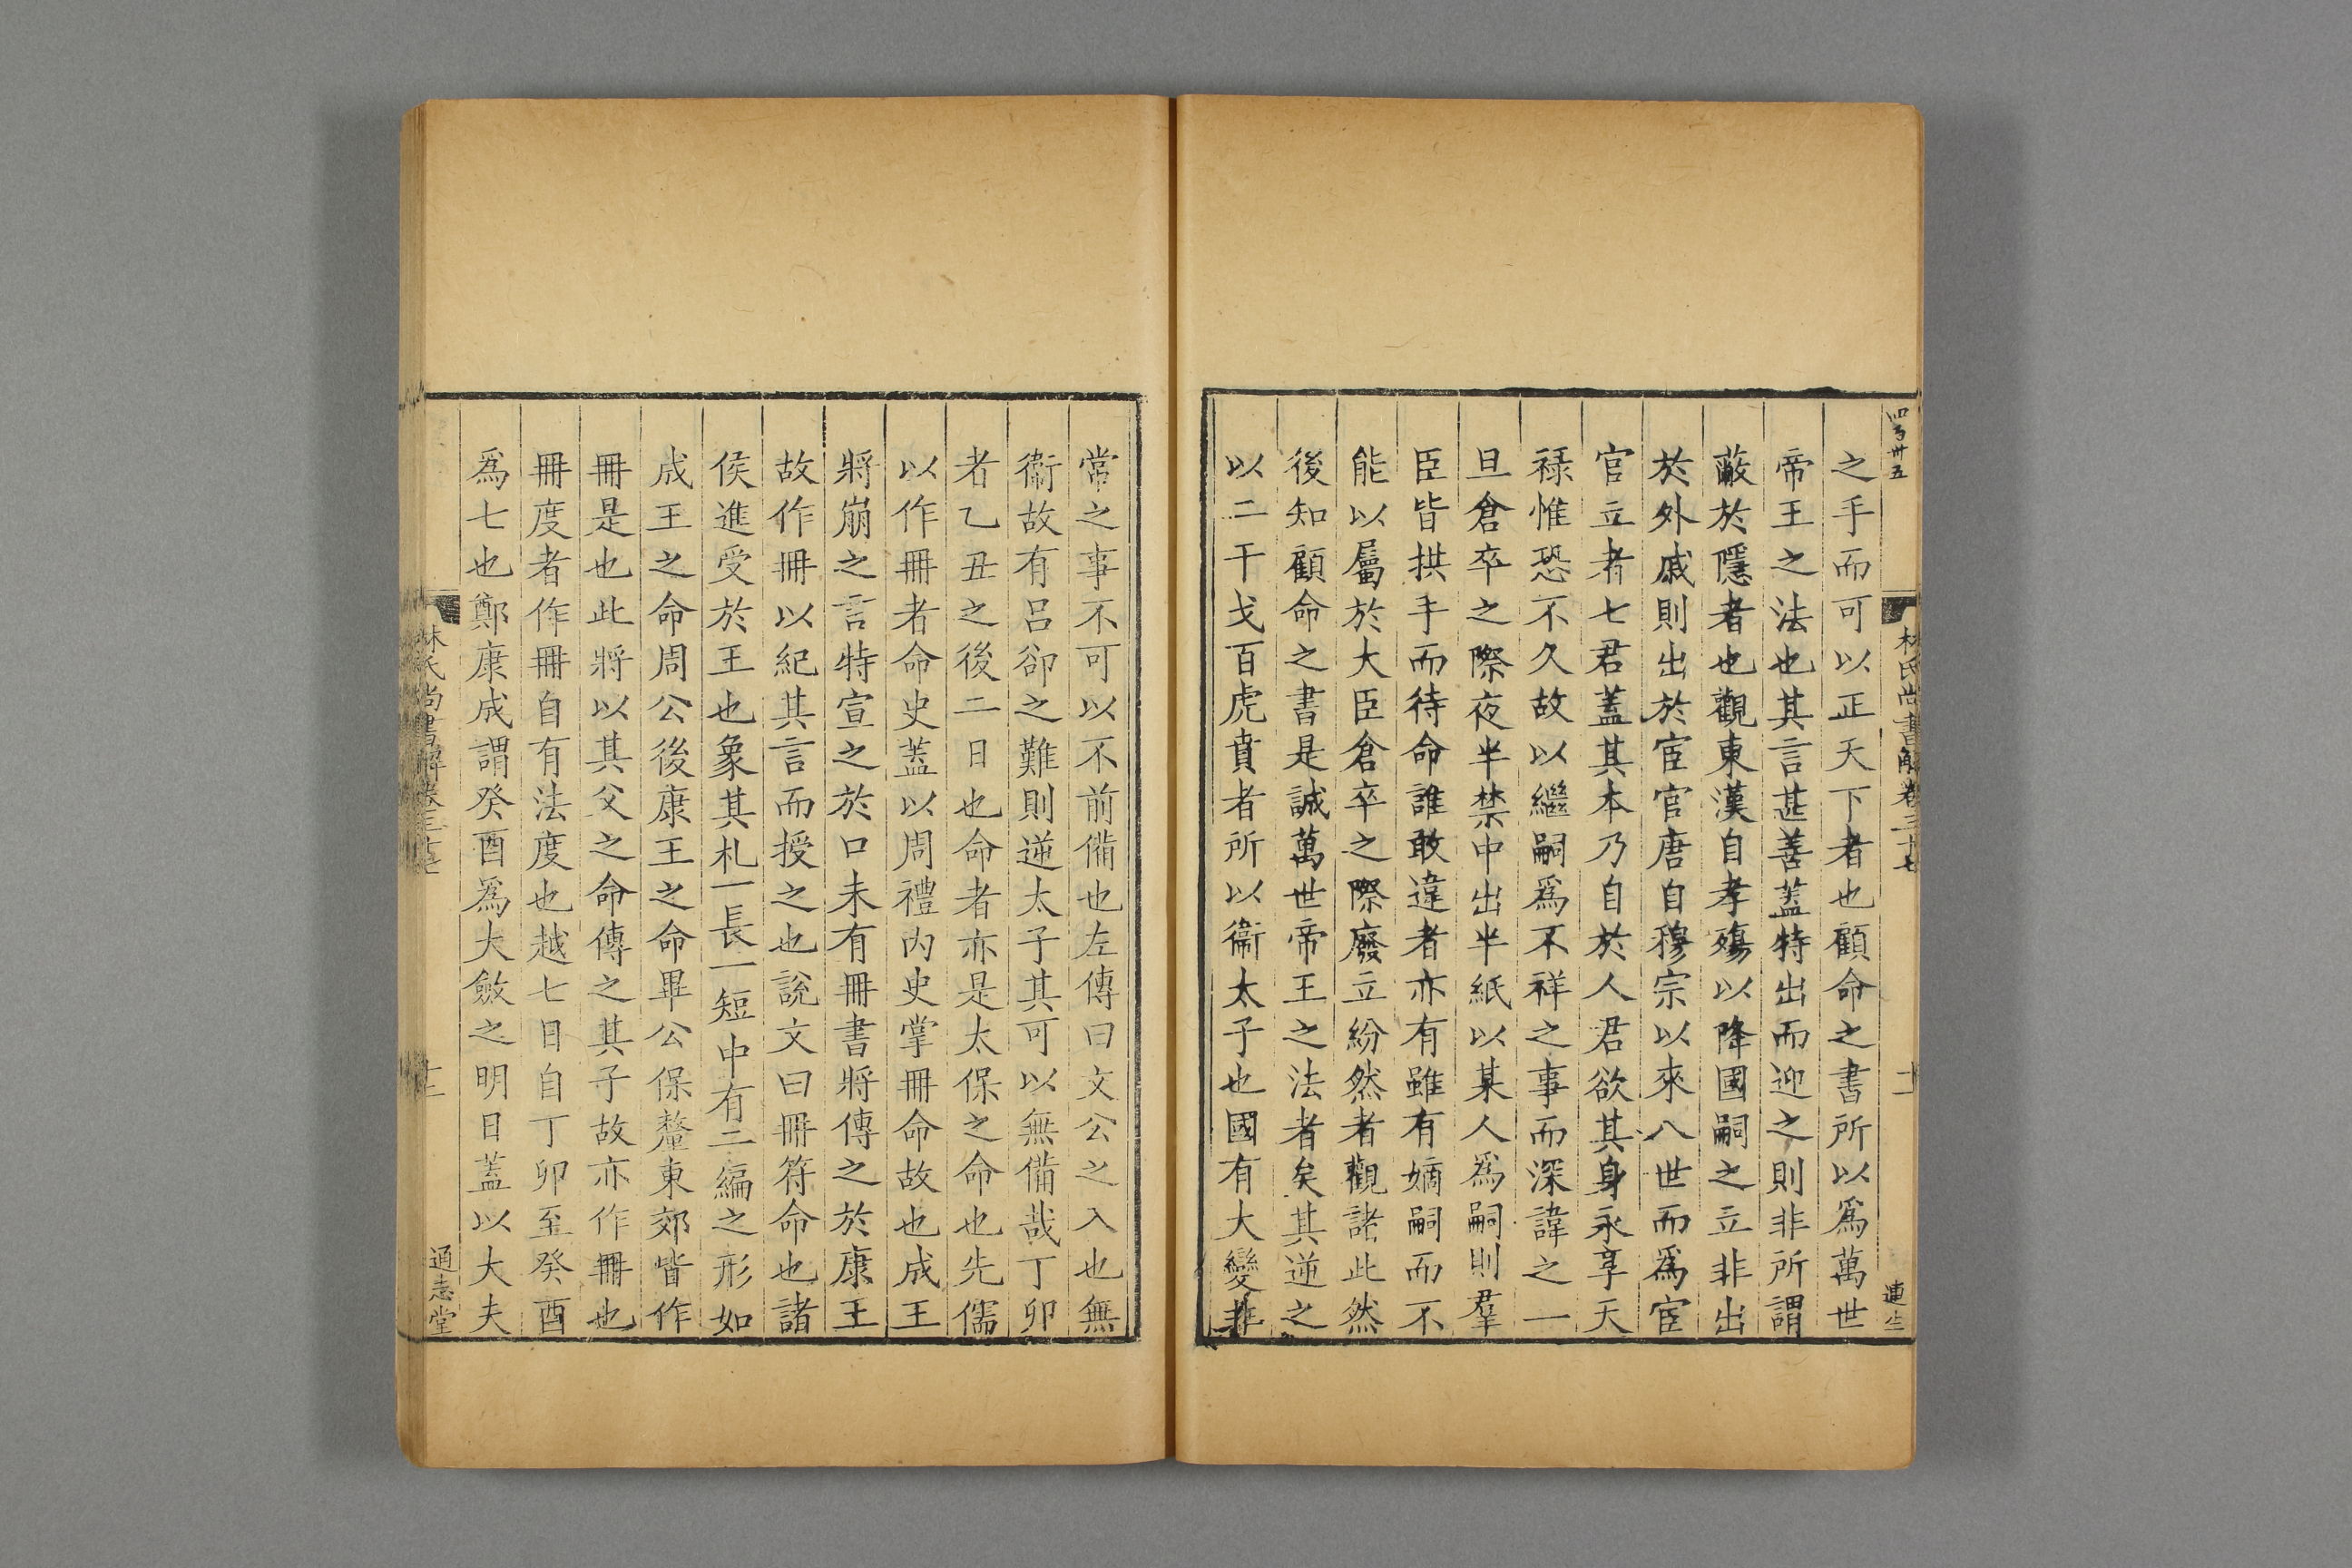 四百卅五
林氏尚書解卷三十七
十二
通生
之手而可以正天下者也顧命之書所以爲萬世
帝王之法也其言甚善蓋特出而迎之則非所謂
蔽於隱者也觀東漢自孝殤以降國嗣之立非出
於外戚則出於宦官唐自穆宗以來八世而爲宦
官立者七君蓋其本乃自於人君欲其身永享天
祿惟恐不久故以繼嗣爲不祥之事而深諱之一
旦倉卒之際夜半禁中出半紙以某人爲嗣則羣
臣皆拱手而待命誰敢違者亦有雖有嫡嗣而不
能以屬於大臣倉卒之際廢立紛然者觀諸此然
後知顧命之書是誠萬世帝王之法者矣其逆之
以二干戈百虎賁者所以衞太子也國有大變非
常之事不可以不前備也左傳曰文公之入也無
衞故有呂郤之難則逆太子其可以無備哉丁卯
者乙丑之後二日也命者亦是太保之命也先儒
以作冊者命史蓋以周禮內史掌冊命故也成王
將崩之言特宣之於口未有冊書將傳之於康王
故作冊以紀其言而授之也說文曰冊符命也諸
侯進受於王也象其札一長一短中有二編之形如
成王之命周公後康王之命畢公保釐東郊皆作
冊是也此將以其父之命傳之其子故亦作冊也
冊度者作冊自有法度也越七日自丁卯至癸酉
爲七也鄭康成謂癸酉爲大斂之明日蓋以大夫
林氏尚書解卷三十七
十三
通志堂